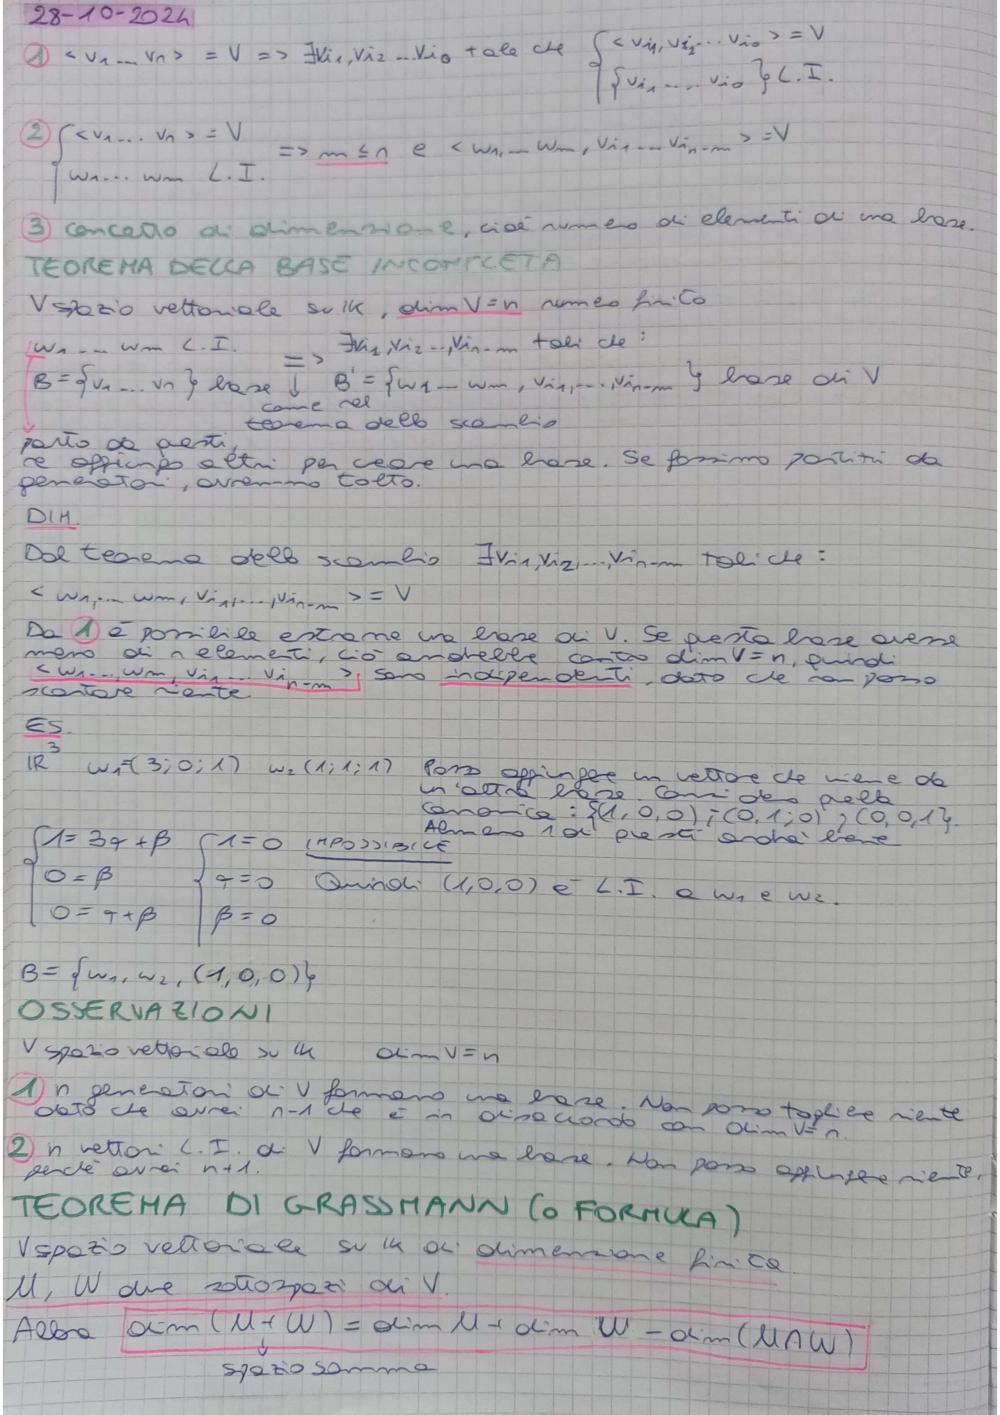 28-10-2024
1 <v1 ... vn> = V => ∃vi1, vi2 ... vi0 tale che { <vi1, vi2 ... vi0> = V
{vi1, ..., vi0} L.I.
2 { <v1 ... vn> = V
w1 ... wm L.I. => m ≤ n e <w1, ... wm, vi1 ... vin-m> = V
3 concetto di dimensione, cioè numero di elementi di una base.
TEOREMA DELLA BASE INCOMPLETA
V spazio vettoriale su IK, dim V = n numero finito
w1 ... wm L.I. => ∃vi1, vi2 ..., vin-m tali che:
B = {v1 ... vn} base B' = {w1 ... wm, vi1, ..., vin-m} base di V
come nel
teorema dello scambio
parto da questi,
ne aggiungo altri per creare una base. Se fossimo partiti da
generatori, avremmo tolto.
DIM.
Dal teorema dello scambio ∃vi1, vi2, ..., vin-m tali che:
<w1, ... wm, vi1, ..., vin-m> = V
Da 1 è possibile estrarne una base di V. Se questa base avesse
meno di n elementi, ciò andrebbe contro dim V = n, quindi
<w1 ..., wm, vi1 ... vin-m> sono indipendenti, dato che non posso
scartare niente
ES.
IR³ w1=(3;0;1) w2(1;1;1) Posso aggiungere un vettore che viene da
un'altra base. Considero quella
canonica: {(1,0,0);(0,1;0);(0,0,1}.
Almeno 1 di questi andrà bene
{ 1 = 3α + β { 1 = 0 IMPOSSIBILE
0 = β α = 0 Quindi (1,0,0) è L.I. a w1 e w2.
0 = α + β β = 0
B = {w1, w2, (1,0,0)}
OSSERVAZIONI
V spazio vettoriale su IK dim V = n
1 n generatori di V formano una base. Non posso togliere niente
dato che avrei n-1 che è in disaccordo con dim V = n.
2 n vettori L.I. di V formano una base. Non posso aggiungere niente,
perché avrei n+1.
TEOREMA DI GRASSMANN (o FORMULA)
V spazio vettoriale su IK di dimensione finita.
U, W due sottospazi di V.
Allora dim(U + W) = dim U + dim W - dim(U∩W)
spazio somma